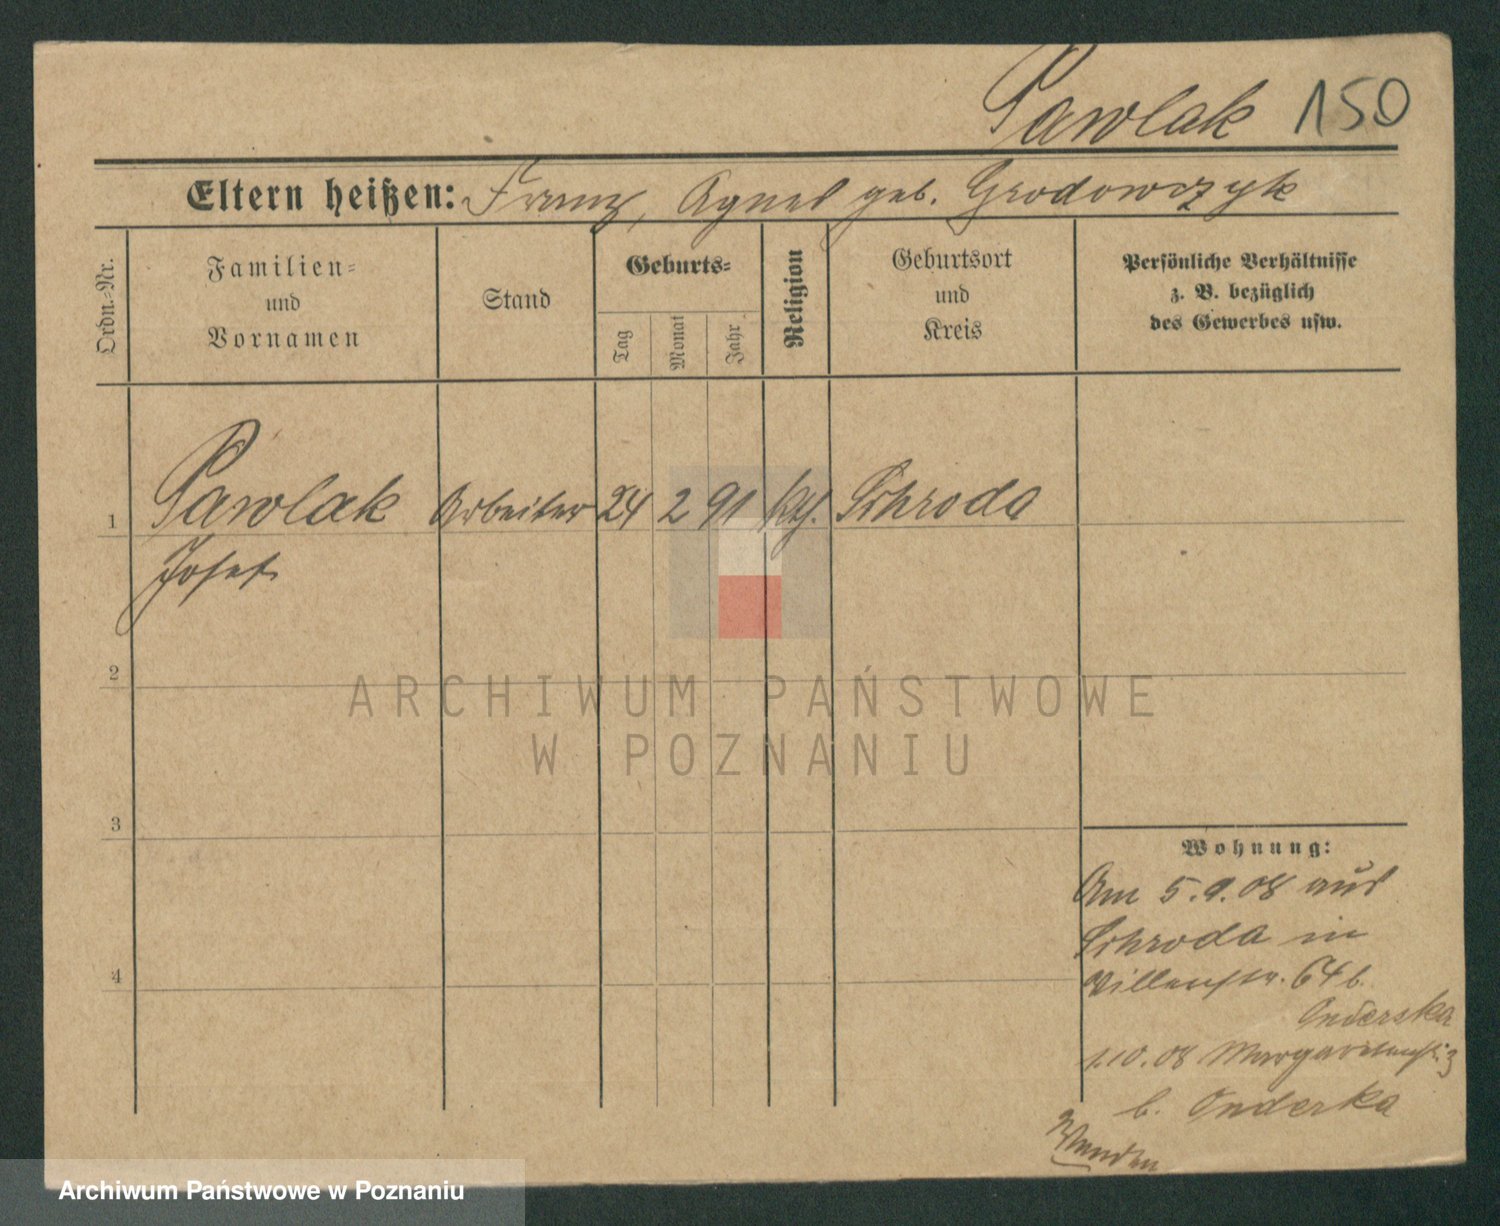 Pawlak 150
Eltern heißen: Franz, Agnes geb. Grodowczyk
Ordn.-Nr.
Familien-
und
Vornamen
Stand
Geburts-
Tag
Monat
Jahr
Religion
Geburtsort
und
Kreis
Persönliche Verhältnisse
z. B. bezüglich
des Gewerbes usw.
1 Pawlak Arbeiter 24 2 91 kth. Schroda
Josef
2
3
4
ARCHIWUM PAŃSTWOWE
W POZNANIU
Wohnung:
Am 5.9.08 aus
Schroda in
Villenstr. 64 b.
Onderska
1.10.08 3
b. Onderka
Wenden
Archiwum Państwowe w Poznaniu